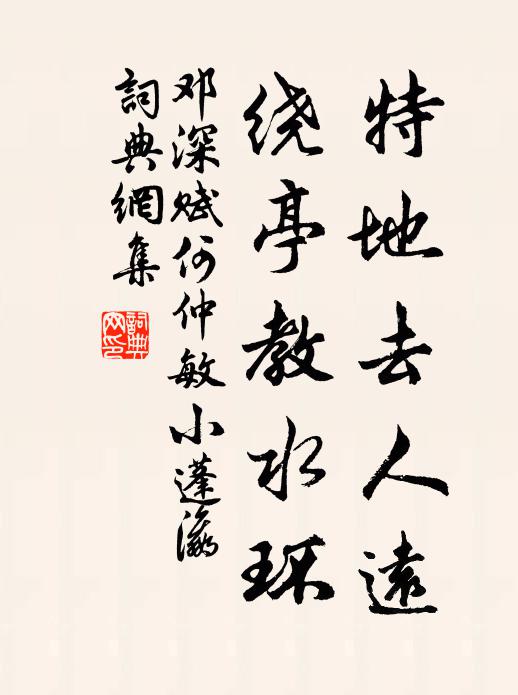 特地去人遠
绕亭教水环
邓深赋何仲敏小蓬瀛
詞典網集
詞典网印